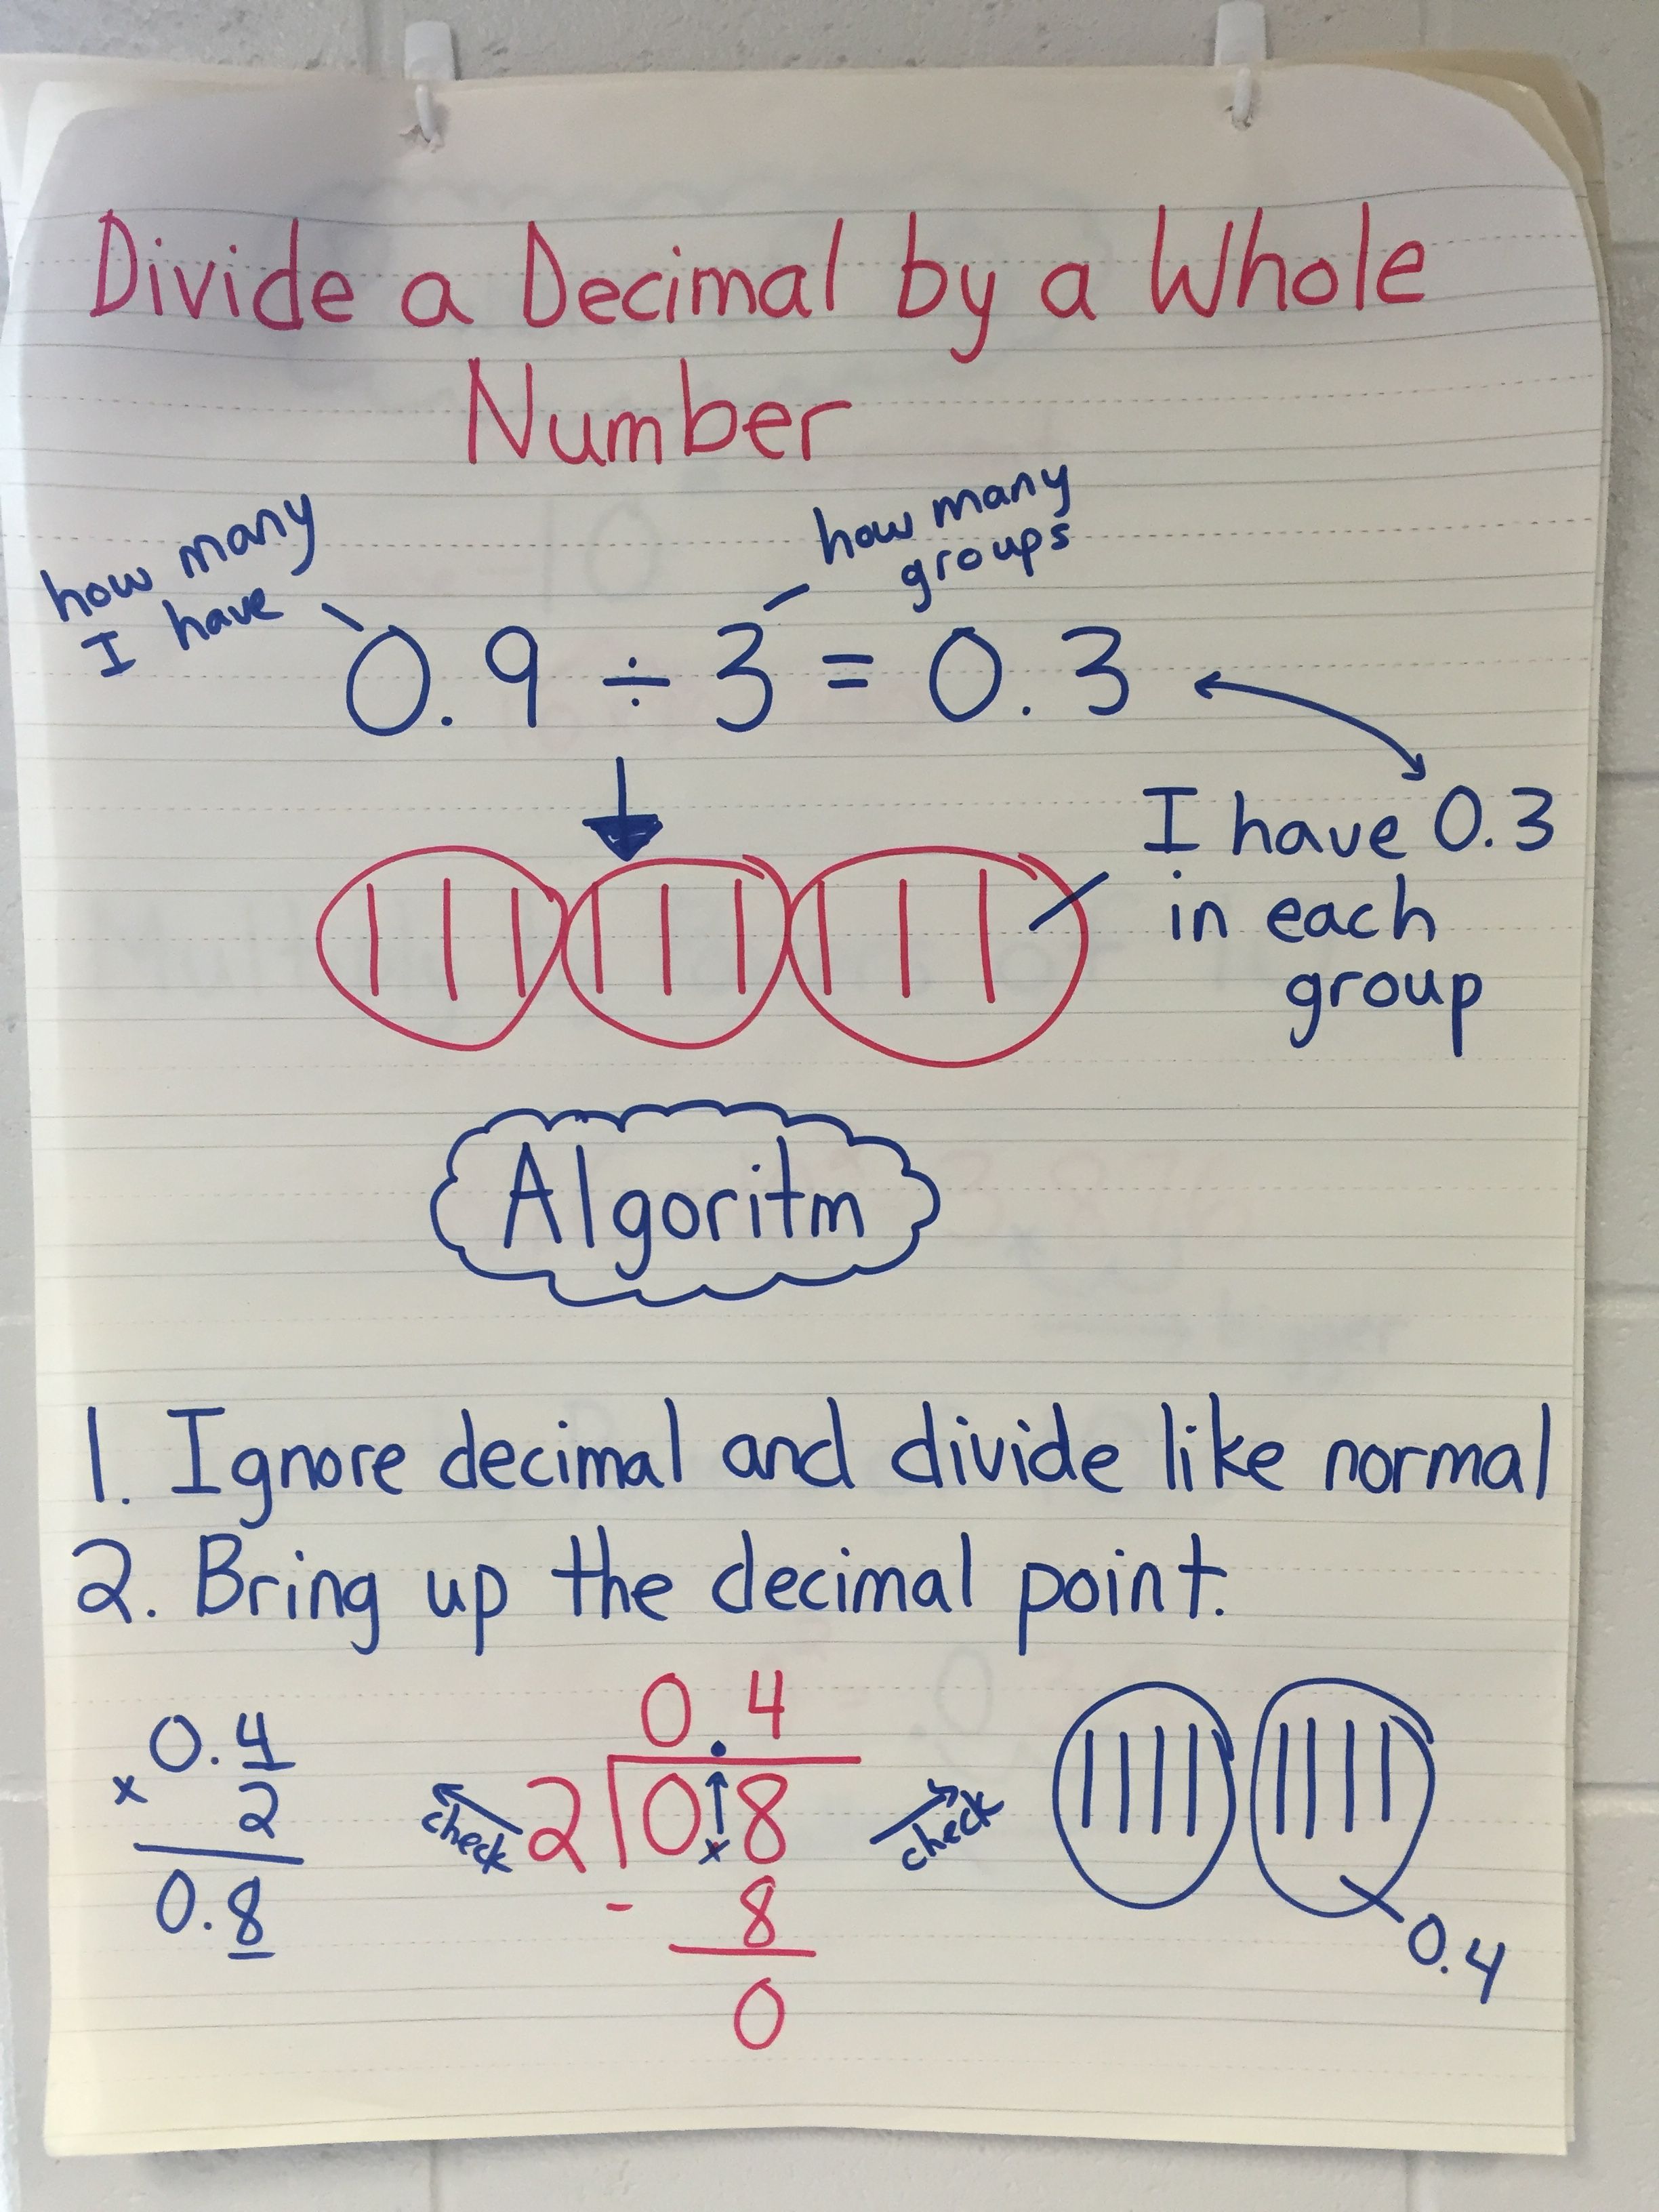 Divide a Decimal by a Whole
Number
how many
I have
how many
groups
0.9 ÷ 3 = 0.3
I have 0.3
in each
group
Algoritm
1. Ignore decimal and divide like normal
2. Bring up the decimal point.
0.4
x 2
0.8
check
0.4
2 0.8
- 8
0
check
0.4